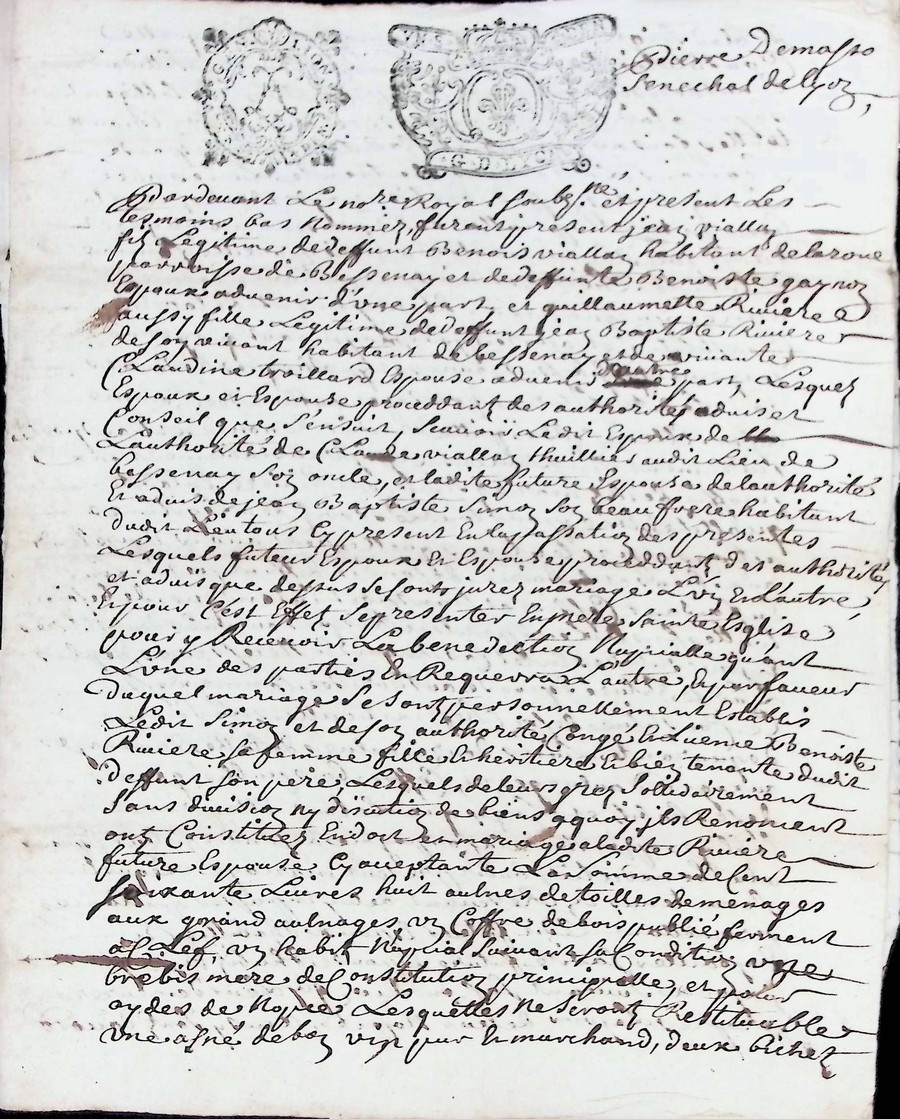 Pierre Demasso
Senechal delyon,
G. D. LYON
Pardevant Le no.re Royal soubs.né et present Les
tesmoins bas Nommez furent present jean viallay
fil Legitime dedeffunt Benois viallay habitant de laroue
parroisse de Bessenay et dedeffunte Benoiste gaynon
Espoux advenir d'une part, et guillaumette Riviere
aussy fille Legitime dedeffunt jean Baptiste Riviere
desoy vivant habitant de bessenay et de vivante
Claudine troillard Espouse advenir d'autre part, Lesquelz
Espoux et Espouse proceddant des authorités advis et
Conseil que S'ensuit, Scavoir Ledit Espoux de
L'authorité de Claude viallay thuillier audit Lieu de
bessenay son oncle, et ladite future Espouse de lauthorité
Et advis de jean Baptiste Simon son beau frere habitant
dudit Lieu tous Cy present En la passation des presentes
Lesquels futeur Espoux Et Espouse proceddantz des authoritéz
et advis que dessus se sont jurez mariage L'un En L'autre
Et pour C'est Effet se presenter En mere Sainte Esglise
pour y Recevoir La benediction Nuptialle quant
L'une des parties En Requerra L'autre, Et par faveur
duquel mariage se sont personnellement Establis
Ledit Simon et de son authorité Congé Et Licence Benoiste
Riviere sa femme fille Et heritiere Et bien tenante dudit
deffunt son pere, Lesquels de leurs grez Sollidairement
Sans division ny discution de biens a quoy jls Renoncent
ont Constituez En dot et en mariage a ladite Riviere
future Espouse Cy aceptante La Somme de Cent
soixante Livres huit aulnes de toilles demenages
aux grand aulnages un Coffre de bois publié ferment
a Clef, un habit Nuptial Suivant sa Condition une
brebis mere de Constitution principalle, et pour
aydes de Nopce Lesquelles ne Seront Restituable
une asné de bon vin pur Et marchand, deux bichet